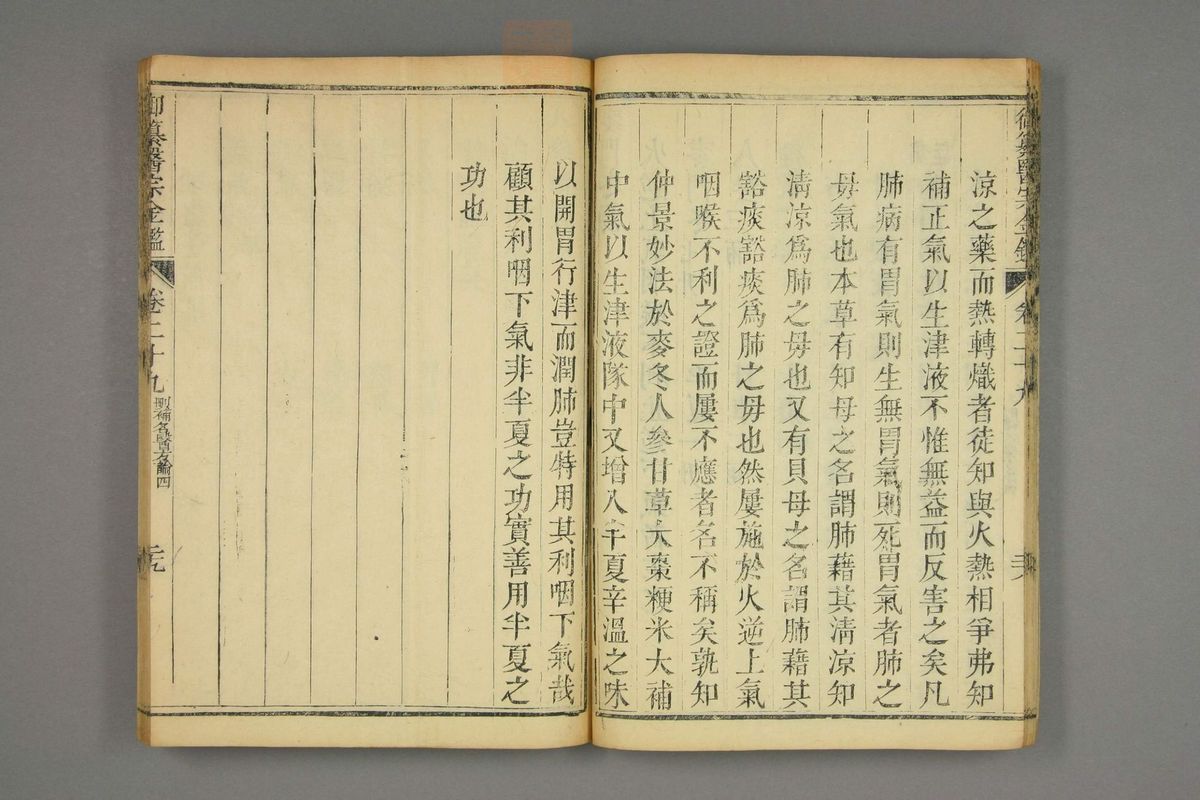 御纂醫宗金鑑
卷二十九
涼之藥而熱轉熾者徒知與火熱相爭弗知
補正氣以生津液不惟無益而反害之矣凡
肺病有胃氣則生無胃氣則死胃氣者肺之
母氣也本草有知母之名謂肺藉其清涼知
清涼爲肺之母也又有貝母之名謂肺藉其
豁痰豁痰爲肺之母也然屢施於火逆上氣
咽喉不利之證而屢不應者名不稱矣孰知
仲景妙法於麥冬人參甘草大棗粳米大補
中氣以生津液隊中又增入半夏辛溫之味
以開胃行津而潤肺豈特用其利咽下氣哉
顧其利咽下氣非半夏之功實善用半夏之
功也
御纂醫宗金鑑
卷二十九
刪補名醫方論四